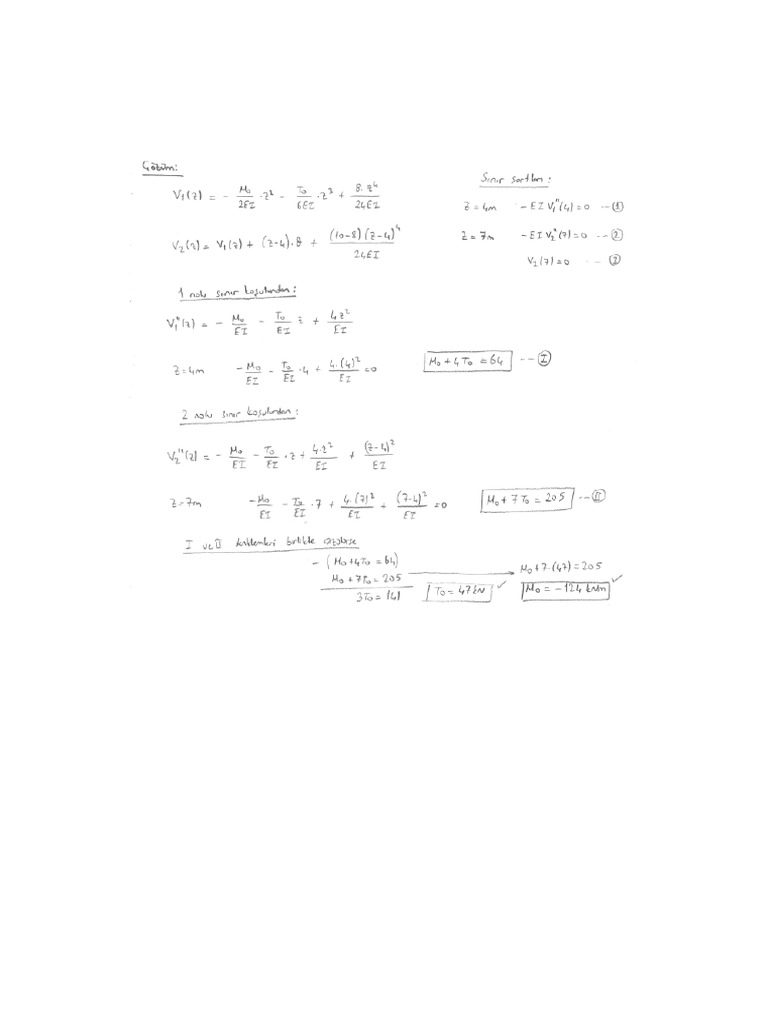 Çözüm:
V₁(z) = - M₀/2EI · z² - T₀/6EI · z³ + 8·z⁴/24EI
V₂(z) = V₁(z) + (z-4)·θ + (10-8)(z-4)⁴/24EI
Sınır şartları:
z = 4m -EI V₁''(4) = 0 --- ①
z = 7m -EI V₂''(7) = 0 --- ②
V₂(7) = 0 --- ②
1 nolu sınır koşulundan:
V₁''(z) = - M₀/EI - T₀/EI z + 4z²/EI
z = 4m -M₀/EI - T₀/EI · 4 + 4·(4)²/EI = 0 M₀ + 4T₀ = 64 --- Ⓘ
2 nolu sınır koşulundan:
V₂''(z) = - M₀/EI - T₀/EI · z + 4·z²/EI + (z-4)²/EI
z = 7m -M₀/EI - T₀/EI · 7 + 4·(7)²/EI + (7-4)²/EI = 0 M₀ + 7T₀ = 205 --- Ⅱ
I ve II denklemleri birlikte çözülürse
- (M₀ + 4T₀ = 64)
M₀ + 7T₀ = 205
3T₀ = 141
T₀ = 47 kN ✓
M₀ + 7·(47) = 205
M₀ = -124 kNm ✓